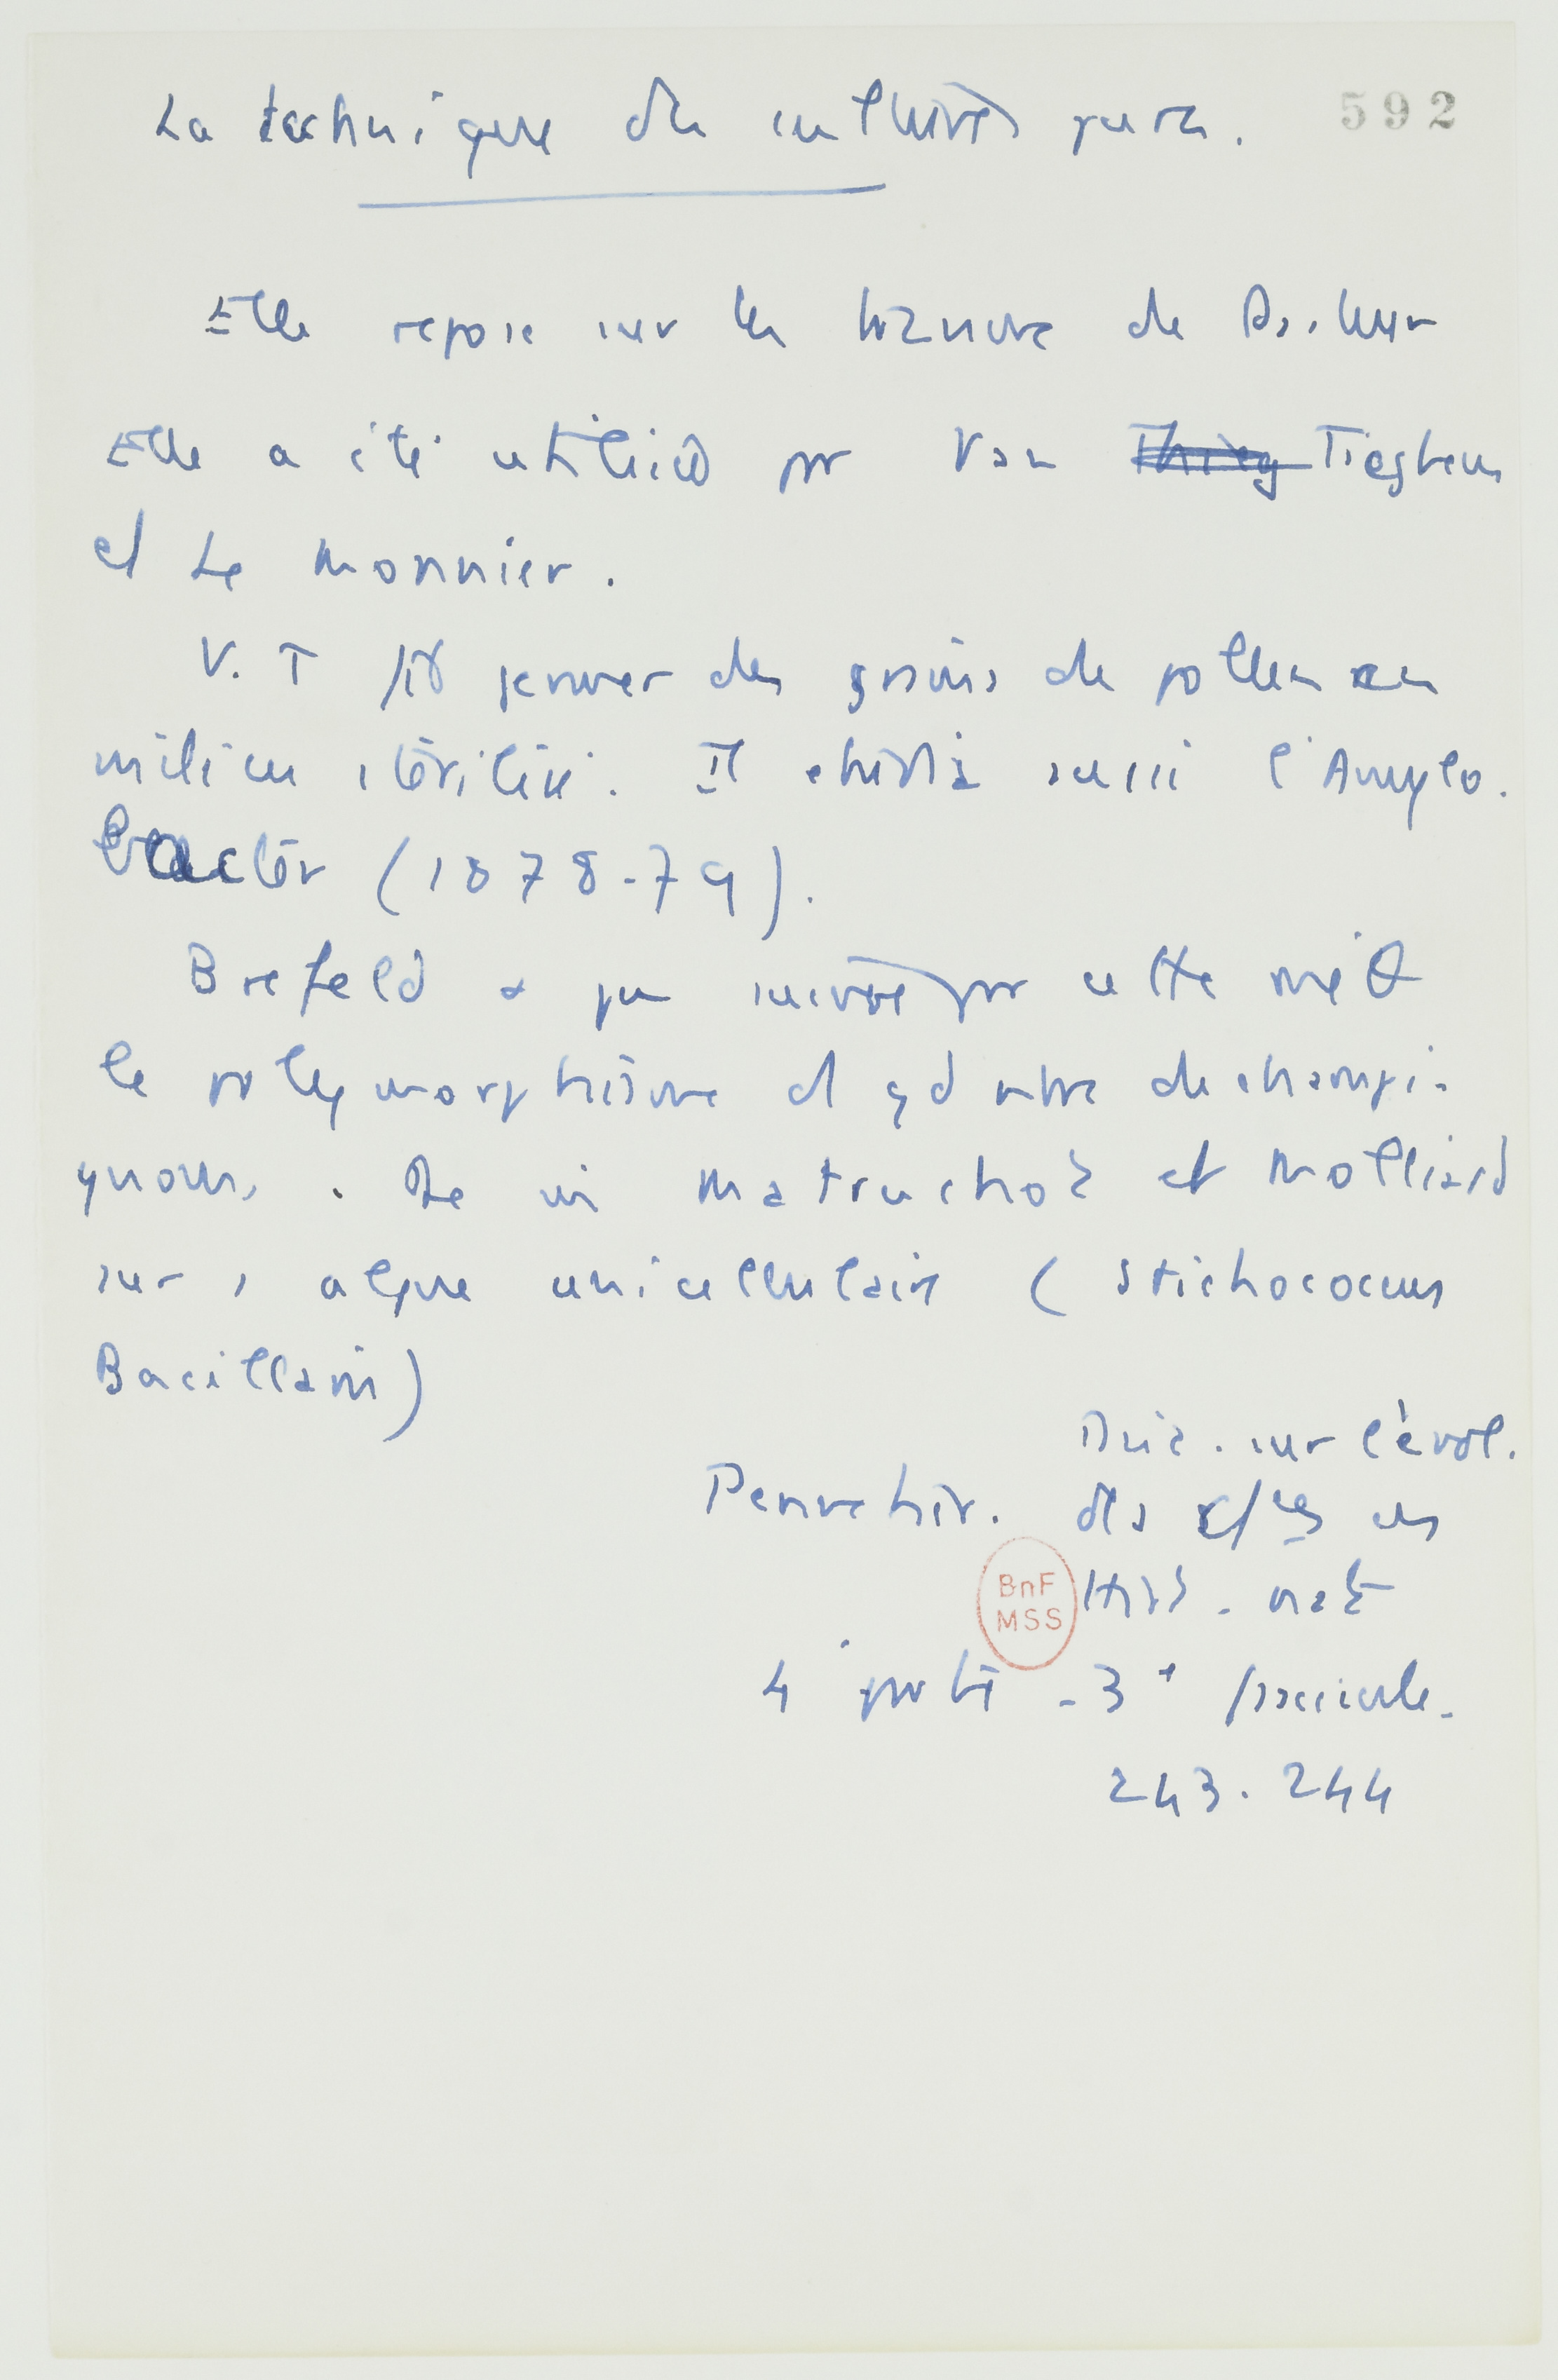 La technique des cultures pures. 592
Elle repose sur les travaux de Pasteur
Elle a été utilisée par Van Thieg Tieghem
et Le Monnier.
V. T fit germer des grains de pollen en
milieu stérilisé. Il étudia aussi l'Amylo-
bacter (1878-79).
Brefeld a pu suivre par cette mét
le polymorphisme d gd nbre de champi-
gnons. De m Matruchot et Molliard
sur 1 algue unicellulaire (Stichococcus
Bacillaris)
sur l'évol.
des en
Hist. nat
BnF
MSS
4 partie - 3e fascicule.
243. 244